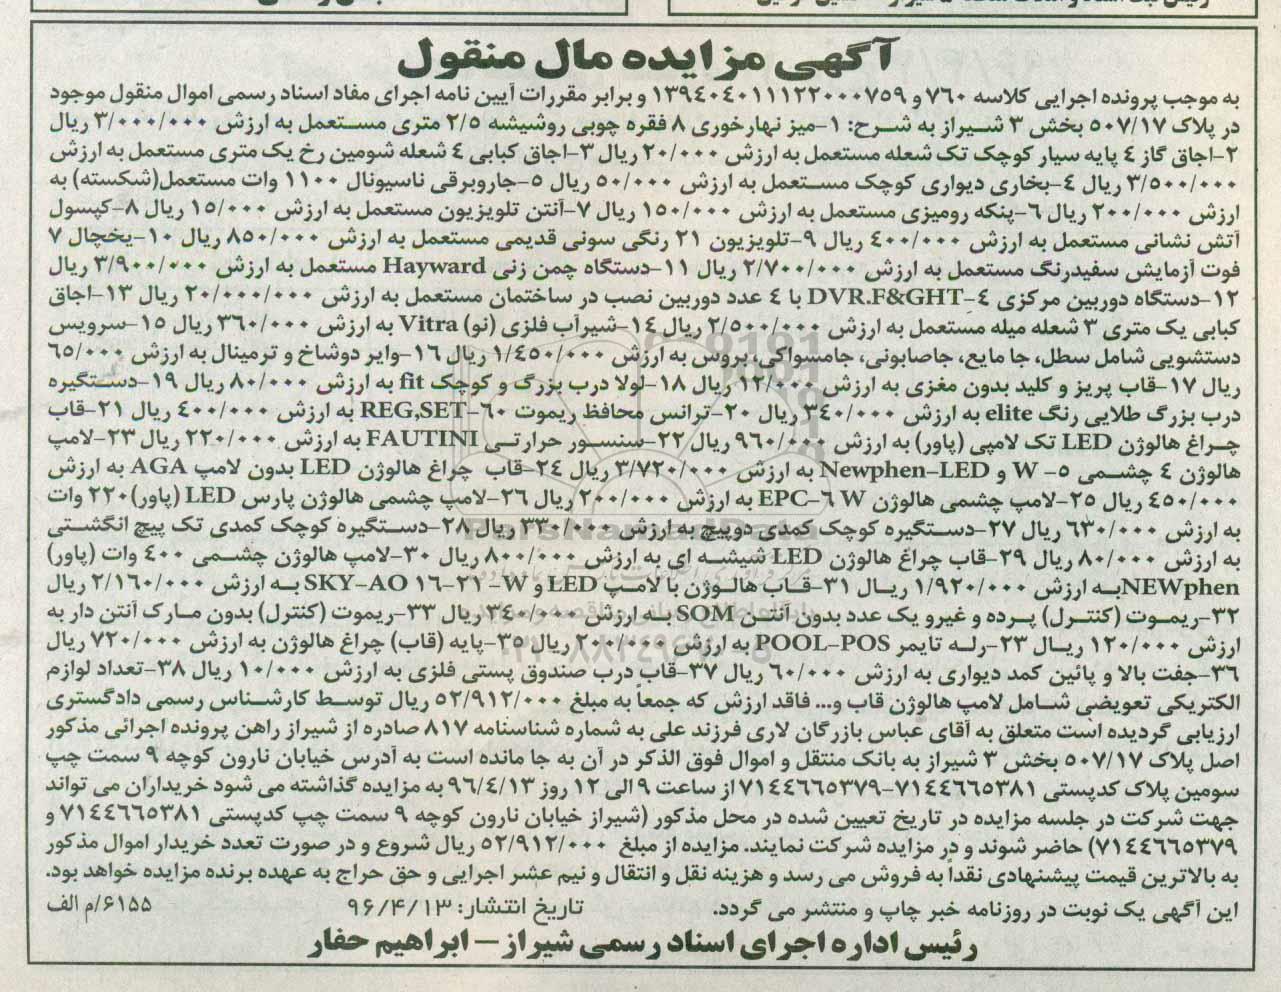 آگهی مزایده مال منقول
به موجب پرونده اجرایی کلاسه ۷۶۰ و ۱۳۹۴۰۴۰۱۱۱۲۲۰۰۰۷۵۹ و برابر مقررات آیین نامه اجرای مفاد اسناد رسمی اموال منقول موجود
در پلاک ۵۰۷/۱۷ بخش ۳ شیراز به شرح: ۱-میز نهارخوری ۸ فقره چوبی روشیشه ۲/۵ متری مستعمل به ارزش ۳/۰۰۰/۰۰۰ ریال
۲-اجاق گاز ۴ پایه سیار کوچک تک شعله مستعمل به ارزش ۲۰/۰۰۰ ریال ۳-اجاق کبابی ۴ شعله شومین رخ یک متری مستعمل به ارزش
۳/۵۰۰/۰۰۰ ریال ۴-بخاری دیواری کوچک مستعمل به ارزش ۵۰/۰۰۰ ریال ۵-جاروبرقی ناسیونال ۱۱۰۰ وات مستعمل(شکسته) به
ارزش ۲۰۰/۰۰۰ ریال ۶-پنکه رومیزی مستعمل به ارزش ۱۵۰/۰۰۰ ریال ۷-آنتن تلویزیون مستعمل به ارزش ۱۵/۰۰۰ ریال ۸-کپسول
آتش نشانی مستعمل به ارزش ۴۰۰/۰۰۰ ریال ۹-تلویزیون ۲۱ رنگی سونی قدیمی مستعمل به ارزش ۸۵۰/۰۰۰ ریال ۱۰-یخچال ۷
فوت آزمایش سفیدرنگ مستعمل به ارزش ۲/۷۰۰/۰۰۰ ریال ۱۱-دستگاه چمن زنی Hayward مستعمل به ارزش ۳/۹۰۰/۰۰۰ ریال
۱۲-دستگاه دوربین مرکزی DVR.F&GHT-۴ با ۴ عدد دوربین نصب در ساختمان مستعمل به ارزش ۲۰/۰۰۰/۰۰۰ ریال ۱۳-اجاق
کبابی یک متری ۳ شعله میله مستعمل به ارزش ۲/۵۰۰/۰۰۰ ریال ۱۴-شیرآب فلزی (نو) Vitra به ارزش ۳۶۰/۰۰۰ ریال ۱۵-سرویس
دستشویی شامل سطل، جا مایع، جاصابونی، جامسواکی، بروس به ارزش ۱/۴۵۰/۰۰۰ ریال ۱۶-وایر دوشاخ و ترمینال به ارزش ۶۵/۰۰۰
ریال ۱۷-قاب پریز و کلید بدون مغزی به ارزش ۱۲/۰۰۰ ریال ۱۸-لولا درب بزرگ و کوچک fit به ارزش ۸۰/۰۰۰ ریال ۱۹-دستگیره
درب بزرگ طلایی رنگ elite به ارزش ۳۴۰/۰۰۰ ریال ۲۰-ترانس محافظ ریموت REG,SET-۶۰ به ارزش ۴۰۰/۰۰۰ ریال ۲۱-قاب
چراغ هالوژن LED تک لامپی (پاور) به ارزش ۹۶۰/۰۰۰ ریال ۲۲-سنسور حرارتی FAUTINI به ارزش ۲۲۰/۰۰۰ ریال ۲۳-لامپ
هالوژن ۴ چشمی ۵- W و Newphen-LED به ارزش ۳/۷۲۰/۰۰۰ ریال ۲۴-قاب چراغ هالوژن LED بدون لامپ AGA به ارزش
۴۵۰/۰۰۰ ریال ۲۵-لامپ چشمی هالوژن EPC-۶ W به ارزش ۲۰۰/۰۰۰ ریال ۲۶-لامپ چشمی هالوژن پارس LED (پاور)۲۲۰ وات
به ارزش ۶۳۰/۰۰۰ ریال ۲۷-دستگیره کوچک کمدی دوپیچ به ارزش ۳۳۰/۰۰۰ ریال ۲۸-دستگیره کوچک کمدی تک پیچ انگشتی
به ارزش ۸۰/۰۰۰ ریال ۲۹-قاب چراغ هالوژن LED شیشه ای به ارزش ۸۰۰/۰۰۰ ریال ۳۰-لامپ هالوژن چشمی ۴۰۰ وات (پاور)
NEWphen به ارزش ۱/۹۲۰/۰۰۰ ریال ۳۱-قاب هالوژن با لامپ LED و SKY-AO ۱۶-۲۱ -W به ارزش ۲/۱۶۰/۰۰۰ ریال
۳۲-ریموت (کنترل) پرده و غیرو یک عدد بدون آنتن SOM به ارزش ۳۴۰/۰۰۰ ریال ۳۳-ریموت (کنترل) بدون مارک آنتن دار به
ارزش ۱۲۰/۰۰۰ ریال ۲۳-رله تایمر POOL-POS به ارزش ۲۰۰/۰۰۰ ریال ۳۵-پایه (قاب) چراغ هالوژن به ارزش ۷۲۰/۰۰۰ ریال
۳۶-جفت بالا و پائین کمد دیواری به ارزش ۶۰/۰۰۰ ریال ۳۷-قاب درب صندوق پستی فلزی به ارزش ۱۰/۰۰۰ ریال ۳۸-تعداد لوازم
الکتریکی تعویضی شامل لامپ هالوژن قاب و... فاقد ارزش که جمعاً به مبلغ ۵۲/۹۱۲/۰۰۰ ریال توسط کارشناس رسمی دادگستری
ارزیابی گردیده است متعلق به آقای عباس بازرگان لاری فرزند علی به شماره شناسنامه ۸۱۷ صادره از شیراز راهن پرونده اجرائی مذکور
اصل پلاک ۵۰۷/۱۷ بخش ۳ شیراز به بانک منتقل و اموال فوق الذکر در آن به جا مانده است به آدرس خیابان نارون کوچه ۹ سمت چپ
سومین پلاک کدپستی ۷۱۴۴۶۶۵۳۸۱-۷۱۴۴۶۶۵۳۷۹ از ساعت ۹ الی ۱۲ روز ۹۶/۴/۱۳ به مزایده گذاشته می شود خریداران می تواند
جهت شرکت در جلسه مزایده در تاریخ تعیین شده در محل مذکور (شیراز خیابان نارون کوچه ۹ سمت چپ کدپستی ۷۱۴۴۶۶۵۳۸۱ و
۷۱۴۴۶۶۵۳۷۹) حاضر شوند و در مزایده شرکت نمایند. مزایده از مبلغ ۵۲/۹۱۲/۰۰۰ ریال شروع و در صورت تعدد خریدار اموال مذکور
به بالاترین قیمت پیشنهادی نقداً به فروش می رسد و هزینه نقل و انتقال و نیم عشر اجرایی و حق حراج به عهده برنده مزایده خواهد بود.
این آگهی یک نوبت در روزنامه خبر چاپ و منتشر می گردد. تاریخ انتشار: ۹۶/۴/۱۳ ۶۱۵۵/م الف
رئیس اداره اجرای اسناد رسمی شیراز – ابراهیم حفار